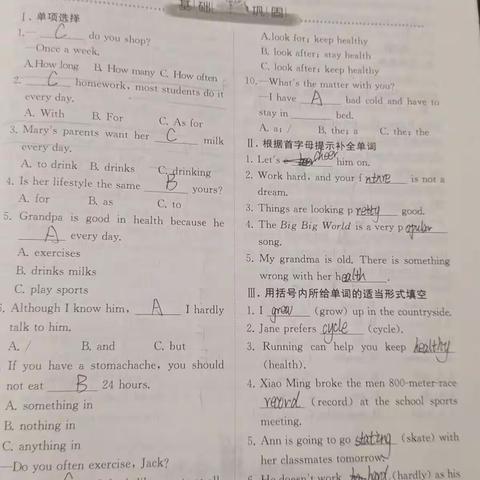 基础巩固
Ⅰ. 单项选择
1.— C do you shop?
—Once a week.
A.How long B. How many C. How often
2. C homework, most students do it
every day.
A. With B. For C. As for
3. Mary's parents want her C milk
every day.
A. to drink B. drinks C. drinking
4. Is her lifestyle the same B yours?
A. for B. as C. to
5. Grandpa is good in health because he
A every day.
A. exercises
B. drinks milks
C. play sports
Although I know him, A I hardly
talk to him.
A. / B. and C. but
If you have a stomachache, you should
not eat B 24 hours.
A. something in
B. nothing in
C. anything in
—Do you often exercise, Jack?
A.look for; keep healthy
B. look after; stay health
C. look after; keep healthy
10.—What's the matter with you?
—I have A bad cold and have to
stay in bed.
A. a; / B. the; a C. the; the
Ⅱ. 根据首字母提示补全单词
1. Let's cheer him on.
2. Work hard, and your future is not a
dream.
3. Things are looking pretty good.
4. The Big Big World is a very popular
song.
5. My grandma is old. There is something
wrong with her health.
Ⅲ. 用括号内所给单词的适当形式填空
1. I grow (grow) up in the countryside.
2. Jane prefers cycle (cycle).
3. Running can help you keep healthy
(health).
4. Xiao Ming broke the men 800-meter-race
record (record) at the school sports
meeting.
5. Ann is going to go (skate) with
her classmates tomorrow.
6. He doesn't work hard (hardly) as his